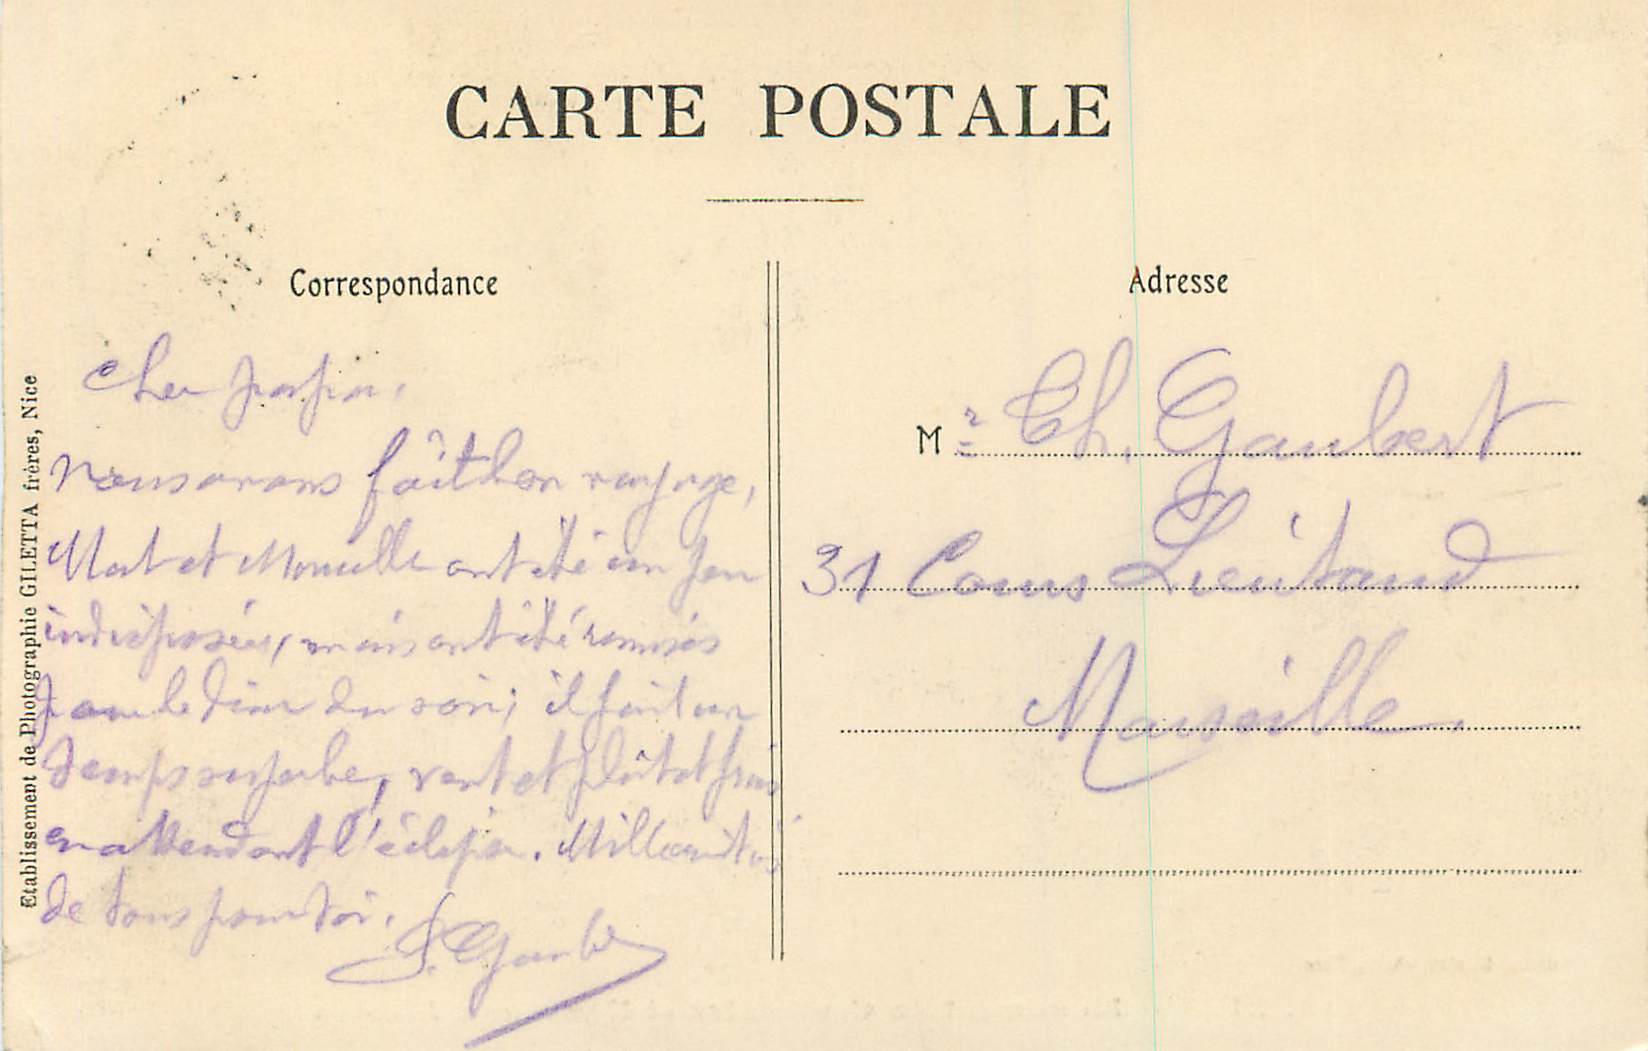 CARTE POSTALE
Correspondance
Cher papa,
Nous avons fait bon voyage,
et ont été un peu
indisposées, mais ont été remises
pour le diner du soir; il fait un
temps superbe, vent et plutôt frais
en attendant l'éclipse. Mille amitiés
de tous pour toi.
Gaubert
Etablissement de Photographie GILETTA frères, Nice
Adresse
Mr Ch. Gaubert
31 Cours Lieutaud
Marseille.